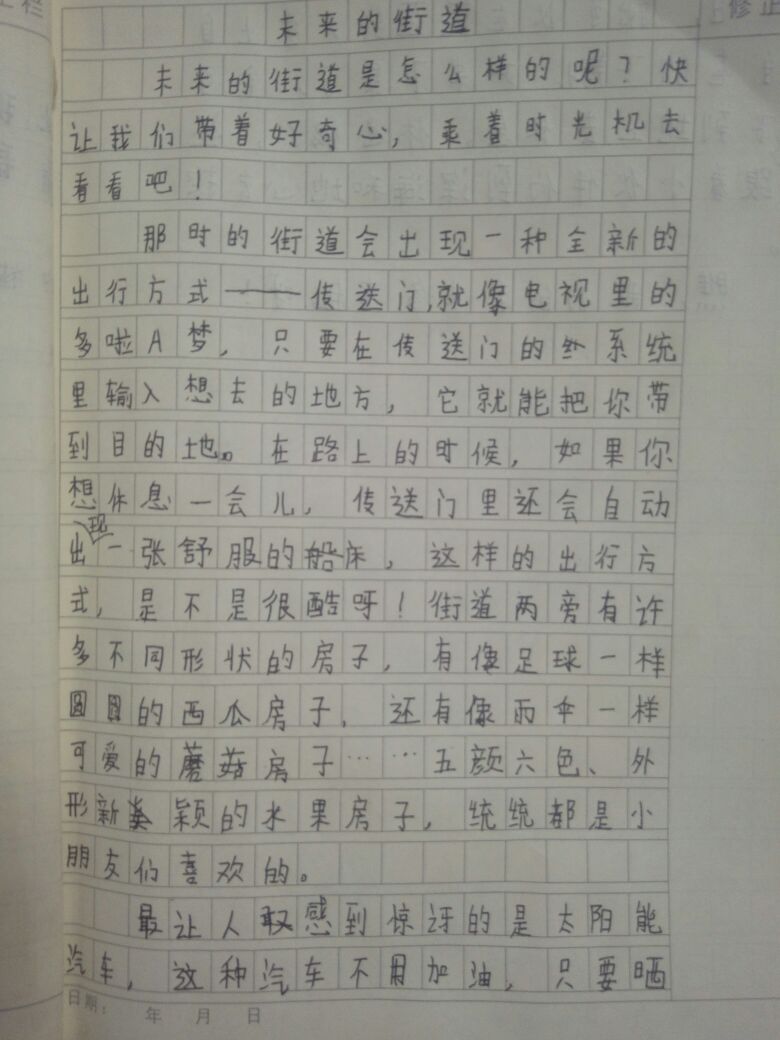 未来的街道
未来的街道是怎么样的呢？快
让我们带着好奇心，乘着时光机去
看看吧！
那时的街道会出现一种全新的
出行方式——传送门，就像电视里的
多啦A梦，只要在传送门的系统
里输入想去的地方，它就能把你带
到目的地。在路上的时候，如果你
想休息一会儿，传送门里还会自动
出现一张舒服的船床，这样的出行方
式，是不是很酷呀！街道两旁有许
多不同形状的房子，有像足球一样
圆圆的西瓜房子，还有像雨伞一样
可爱的蘑菇房子……五颜六色、外
形新颖的水果房子，统统都是小
朋友们喜欢的。
最让人感到惊讶的是太阳能
汽车，这种汽车不用加油，只要晒
日期： 年 月 日
修正